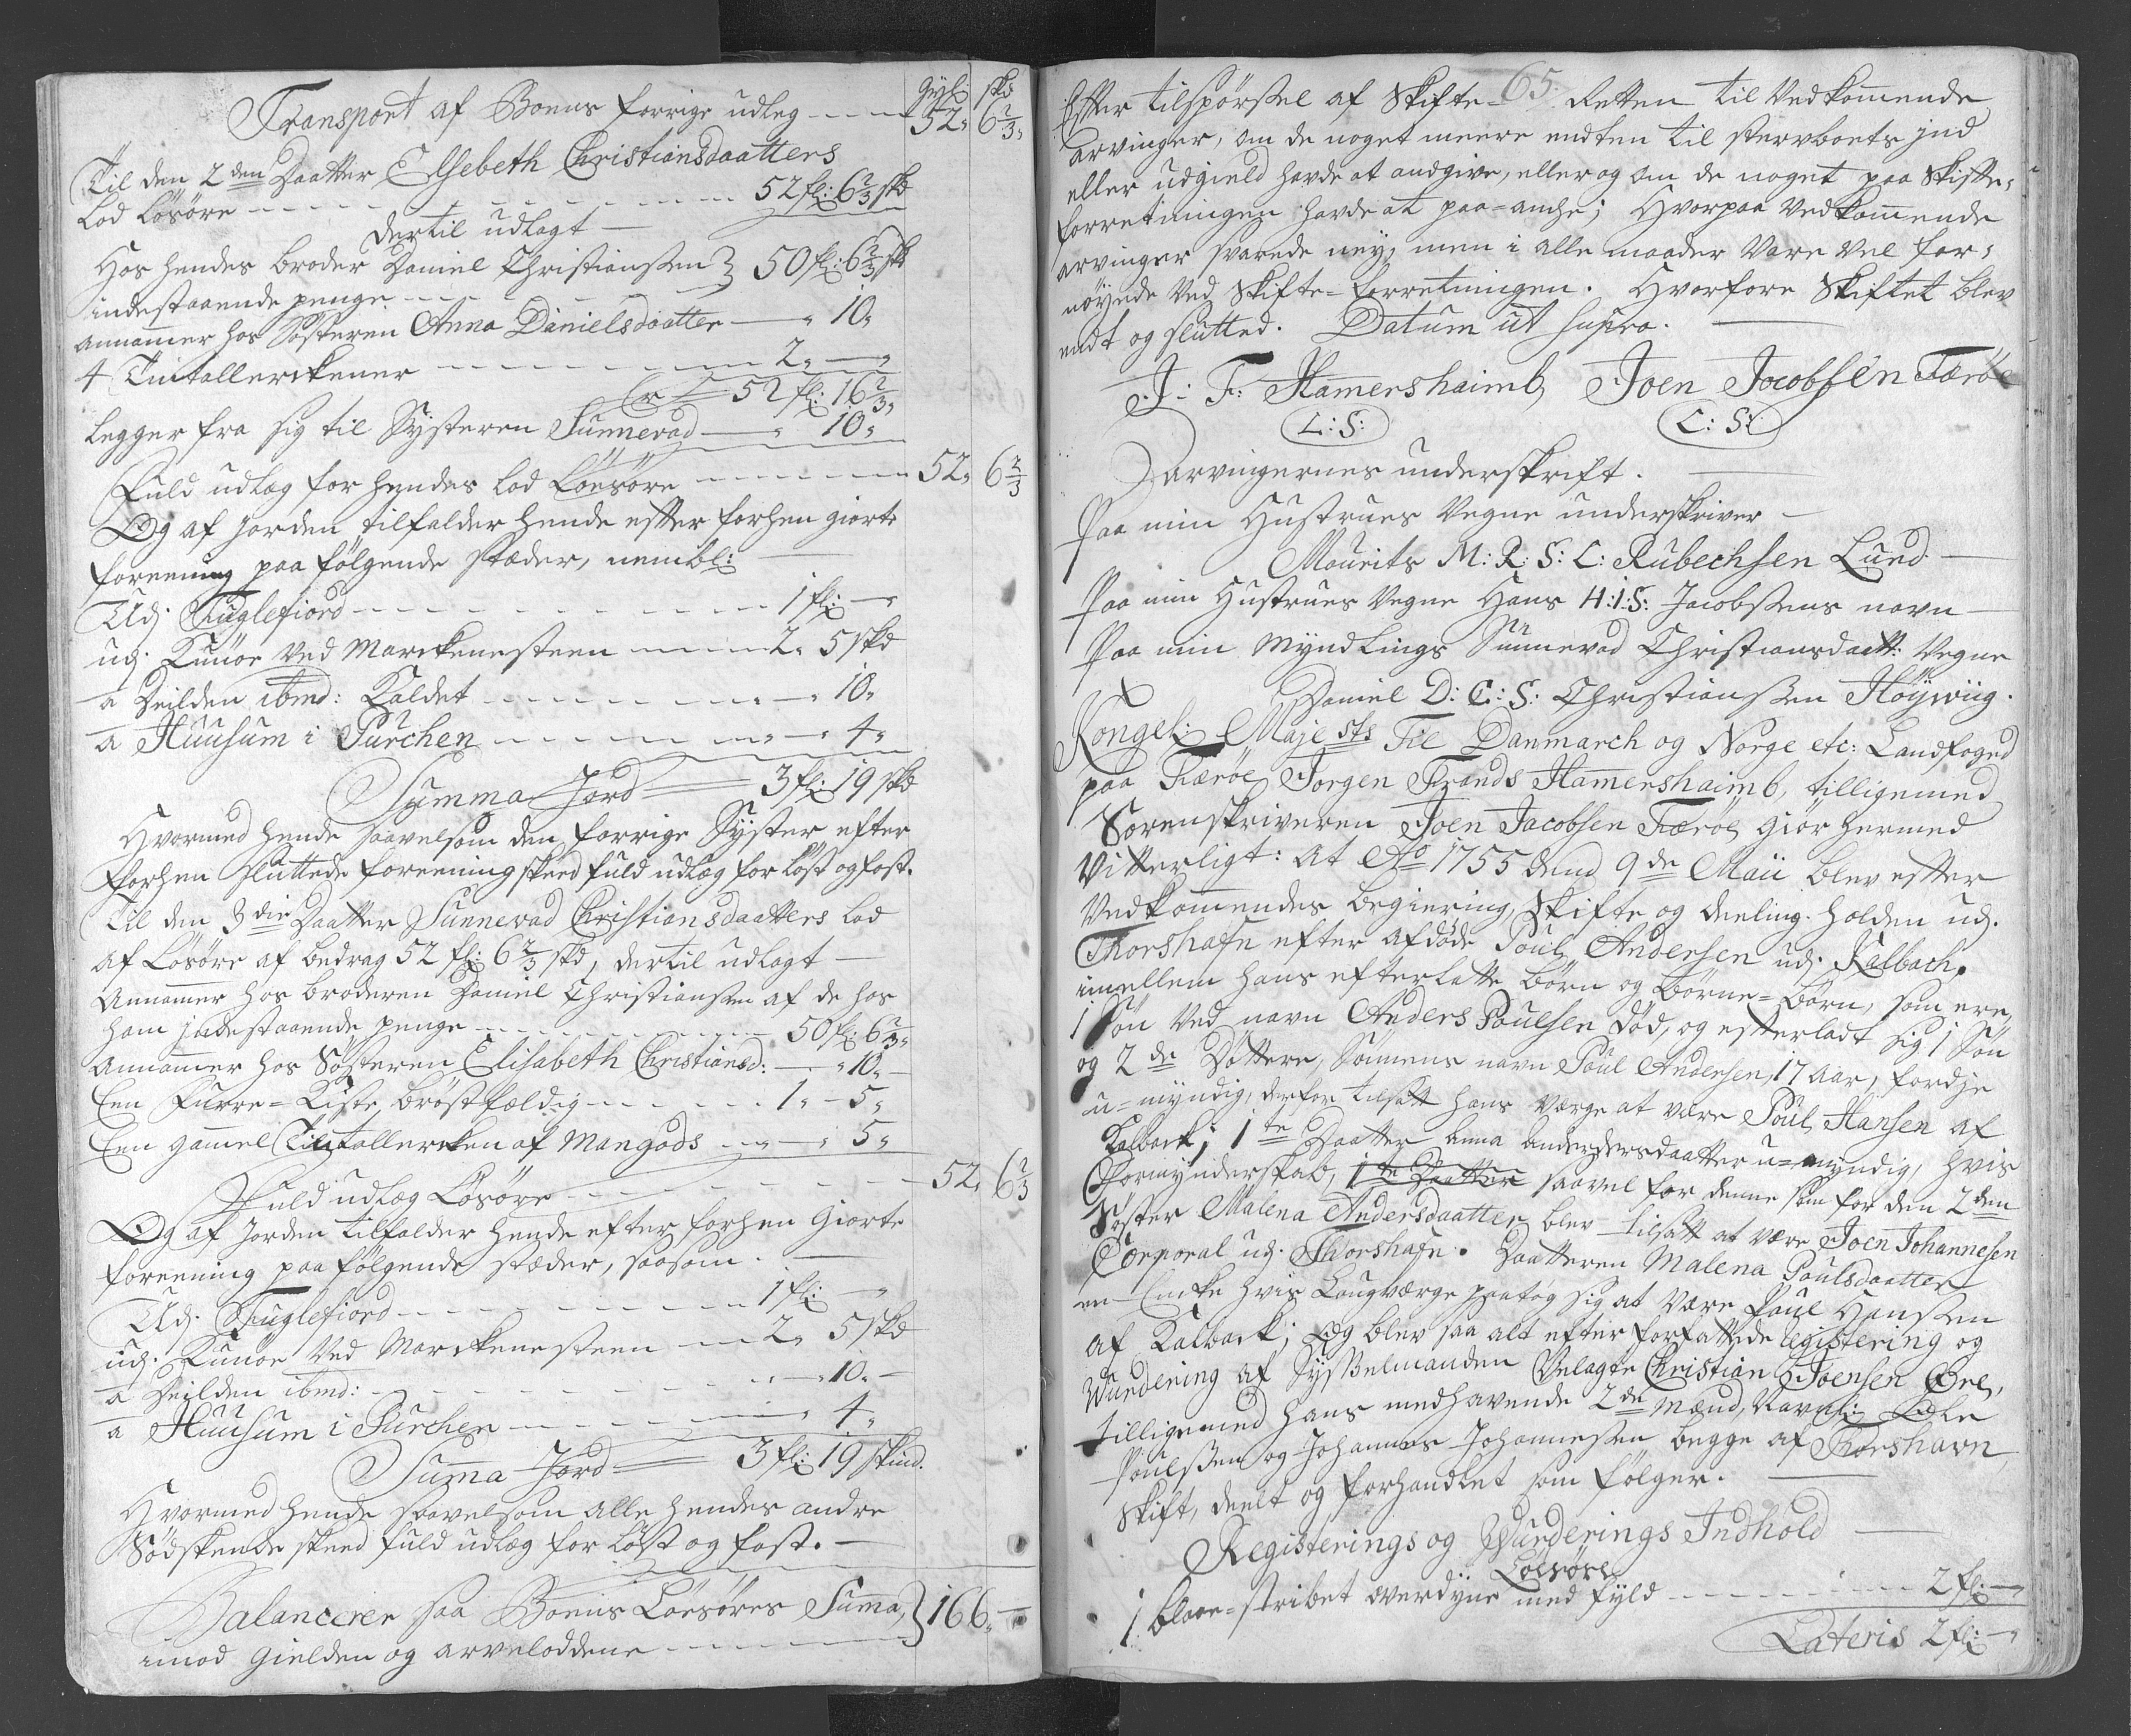 Gyl: skd
Transport af Boens forrige udleg ---- 52„ 6 2/3„
Til den 2den Daatter Elsebeth Christiansdaatters
Lod Løsøre ---- 52 fl: 6 2/3 skd
dertil udlagt —
Hos hendes broder Daniel Christiansen } 50 fl: 6 2/3 skd
indestaaende penge ----
annammer hos Søsteren Anna Danielsdaatter — „ 10„
4 Tintallerckener ---- 2„ — „
Er = 52 fl: 16 2/3„
Legger fra sig til Systeren Sunnevad — „ 10„
Fuld udlæg for hendes lod Løesøre ---- 52„ 6 2/3
Og af Jorden tilfalder hende efter forhen giorte
foreening paa følgende stæder, nembl: —
Udj. Fuglefiord ---- 1 fl: — „
udj. Kunøe ved Marckenesteen ---- 2„ 5 skd
a Deilden ibmd: Kaldet ---- „ 10„
a Huusum i Purchen ---- „ 4„
Summa Jord = 3 fl: 19 skd
Hvormed hende saavelsom den forrige Syster efter
forhen sluttede foreening skeed fuld udlæg for løst og fast.
Til den 3die Daatter Sunnevad Christiansdaatters lod
af Løsøre af bedrag 52 fl: 6 2/3 skd, dertil udlagt —
Annammer hos broderen Daniel Christiansen af de hos
ham indestaaende penge ---- 50 fl: 6 2/3„
Annammer hos Søsteren Elisabeth Christiansd: — „ 10„ —
Een Furre-Kiste, brøstfældig ---- 1„ — 5„
Een gammel Tintallercken af Mangods ---- „ 5„
Fuld udlæg Løsøre ---- 52„ 6 2/3
Og af Jorden tilfalder hende efter forhen Giorte
foreening paa følgende stæder, saasom. —
Udj. Fuglefiord ---- 1 fl: — „
udj. Kunøe ved Marckenesteen ---- 2„ 5 skd
a Deilden ibmd: ---- „ 10„ —
a Huusum i Purchen ---- „ 4„
Suma Jord = 3 fl: 19 skind.
Hvormed hende saavelsom alle hendes andre
Sødskende skeed fuld udlæg for Løst og fast. —
Balancerer saa Boens Løesøres Suma, } 166„ —
imod Gielden og arveloddene ----
65.
Efter tilspørsel af Skifte- Retten til Vedkommende
arvinger, om de noget meere endten til sterboets ind
eller udgield havde at andgive, eller og om de noget paa Skifte-
forretningen havde at paa-anche; Hvorpaa Vedkommende
arvinger svarede ney, men i alle maader vare vel for-
nøyede ved Skifte-forretningen. Hvorfore Skiftet blev
endt og slutted. Datum ut supra. —
J: F: Hamershaimb, Joen Jacobsen Færøe
L: S: L: S:
Arvingernes underskrift. —
Paa min Hustrues Vegne underskriver —
Mourits M: R: S: L: Rubechsen Lund —
Paa min Hustrues Vegne Hans H: I: S: Jacobsens navn —
Paa min Myndlings Sunnevad Christiansdaatt: Vegne
Daniel D: C: S: Christiansen Høywiig.
Kongel: Majests Til Danmarch og Norge etc: Landfoged
paa Færøe, Jørgen Frands Hamershaimb, tilligemed
Sorenskriveren Joen Jacobsen Færøe giør hermed
Vitterligt: at Ao 1755 dend 9de Maii blev efter
Vedkommendes begiering, Skifte og deeling holden udj.
Thorshafn efter afdøde Poul Andersen udj. Kalbach,
imellem hans efterlatte børn og børne-børn, som ere,
1 Søn ved navn Anders Poulsen død, og efterladt sig 1 Søn
og 2de Døttere, Sønnens navn Poul Andersen, 17 aar, fordje
u-myndig, derfor tilsatt hans værge at være Poul Hansen af
Kalback; 1te Daatter Anna Andersdaatter u-myndig, hvis
Formynderskab, 1te Daatter saavel for denne som for den 2den
Søster Malena Andersdaatter blev tilsatt at være Joen Johannesen
Corporal udj. Thorshafn. Daatteren Malena Poulsdaatter
en Encke hvis Laugværge paatog sig at være Poul Hansen
af Kalback; Og blev saa alt efter forfattede registering og
Wurdering af Sysselmanden Velagte Christian Joensen Øre,
tilligemed hans medhavende 2de Mænd, Navnl: Ole
Poulsen og Johannes Johannesen begge af Thorshavn
Skift, deelt og forhandlet som følger. —
Registerings og Wurderings Indhold —
Løesøre
1 blaae-stribet overdyne med fyld ---- 2 fl: —
Lateris 2 fl: — „